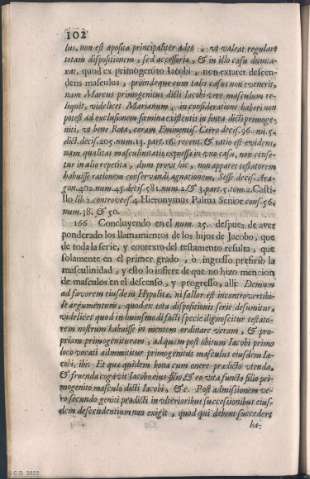 102
lus, non est aposita principaliter adeo, vt valeat regulare
totam dispositionem, sed accessoria, & in illo casu dumta-
xat, quod ex primogenito Iacobi, non extaret descen-
dens masculus, proindeque cum talis casus non euenerit,
nam Marcus primogenitus dicti Iacobi vere masculum re-
liquit, videlicet Marianum, in consideratione haberi non
potest ad exclusionem fœmina existentis in finea dicti primoge-
niti, vt bene Rota, coram Eminentis. Cerro decis. 96. nu. 5.
dict. decis. 205. num. 13. part. 16. recent. & ratio est evidens,
nam qualitas masculinitatis expressa in vno casu, non cense-
tur in alio repetita, dum præsertim, non apparet testatorem
habuisse rationem conservanda agnationem, Sesse decis. Ara-
gon. 402. num. 45. decis. 381. num. 2. & 3. part. 5. tom. 2. Casti-
llo lib. 2. controuers. 4. Hieronymus Palma Senior cons. 56.
num. 38. & 50.
166 Concluyendo en el num. 25. despues de aver
ponderado los llamamientos de los hijos de Jacobo, que
de toda la serie, y contexto del testamento resulta, que
solamente en el primer grado, ò ingresso prefirió la
masculinidad, y esto lo infiere de que no hizo mencion
de masculos en el descenso, y progresso, alli: Demum
ad favorem eiusdem Hypolita, ni fallor est incontrovertibi-
le argumentum, quod ex tota dispositionis serie desumitur,
videlicet quod in huiusmodi facti specie dignoscitur testato-
rem nostrum habuisse in mentem ordinare veram, & pro-
priam primogenituram, ad quam post obitum Iacobi primo
loco vocati admittitur primogenitus masculus eiusdem Ia-
cobi, ibi: Et que quidem bona cum onere prædicto utenda,
& fruenda cogavit Iacobo eius filio & eo vita functo filio pri-
mogenito masculo dicti Iacobi, &c. Post admissionem ve-
ro secundo geniti prædicti in vlterioribus successionibus eius-
dem descendentium non exigit, quod qui debent succedere